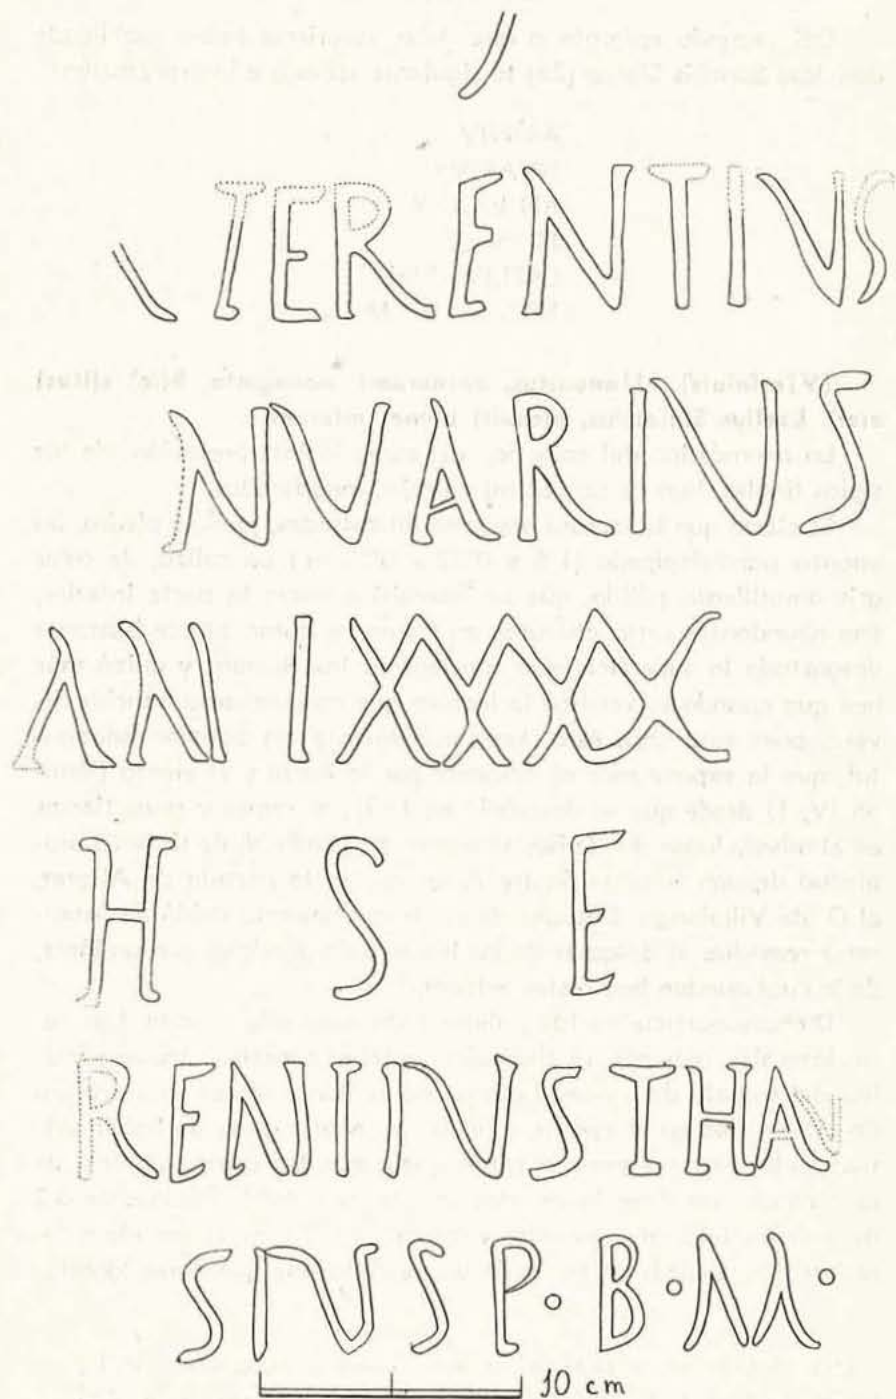 TERENTIVS
NVARIVS
ANIXXXX
H S E
RENIVSTHAN
SIVSP·B·M·
10 cm